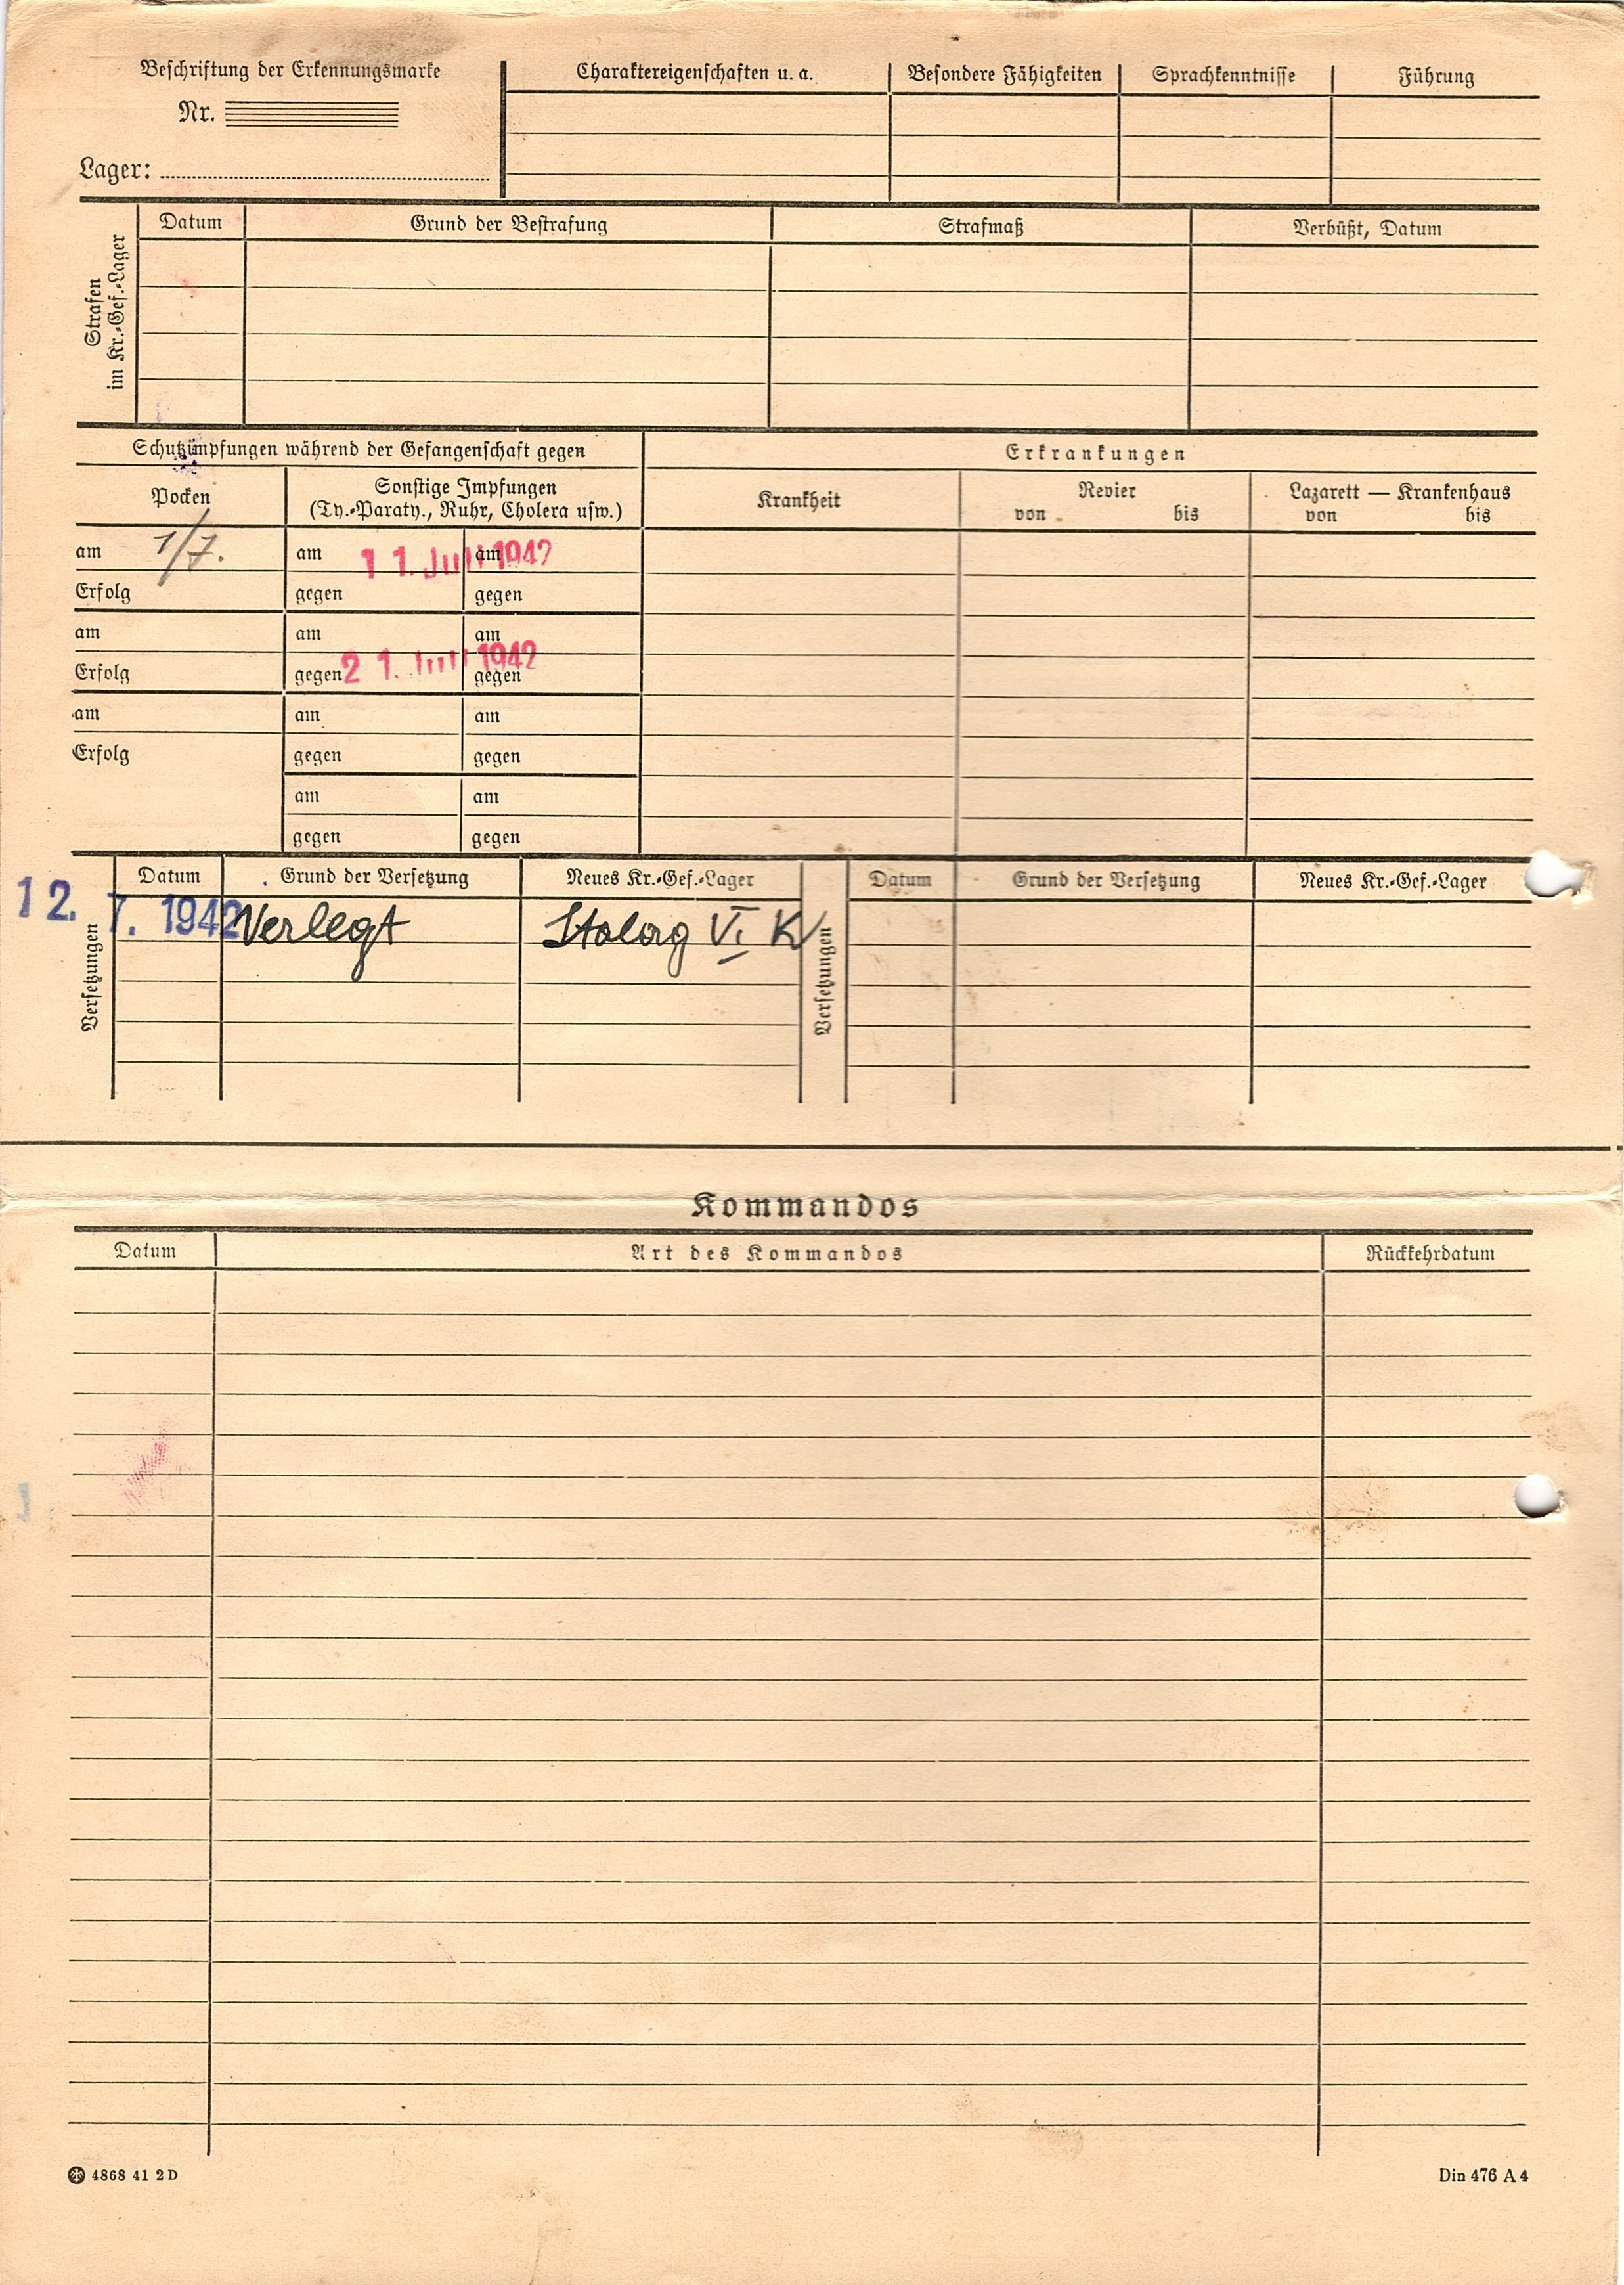 Beschriftung der Erkennungsmarke
Nr.
Lager:
Charaktereigenschaften u. a.
Besondere Fähigkeiten
Sprachkenntnisse
Führung
Strafen
im Kr.-Gef.-Lager
Datum
Grund der Bestrafung
Strafmaß
Verbüßt, Datum
Schutzimpfungen während der Gefangenschaft gegen
Erkrankungen
Pocken
Sonstige Impfungen
(Ty.-Paraty., Ruhr, Cholera usw.)
Krankheit
Revier
von bis
Lazarett — Krankenhaus
von bis
am 1/7. am 11. Juli 1942 am
Erfolg gegen gegen
am am am
Erfolg gegen 21. Juli 1942 gegen
am am am
Erfolg gegen gegen
am am
gegen gegen
Versetzungen
Datum Grund der Versetzung Neues Kr.-Gef.-Lager
12. 7. 1942 Verlegt Stalag VI K
Versetzungen
Datum Grund der Versetzung Neues Kr.-Gef.-Lager
Kommandos
Datum Art des Kommandos Rückkehrdatum
4868 41 2 D
Din 476 A 4